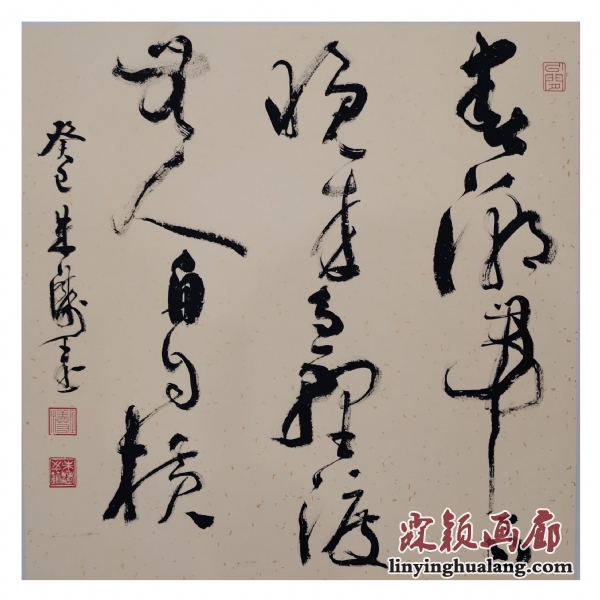 春潮帶雨
晚来急野渡
無人舟自横
癸巳朱
霖颖画廊
linyinghualang.com